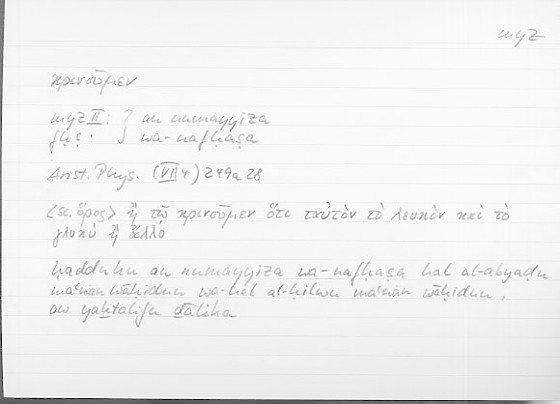 myz
κρινοῦμεν
myz II: } an numayyiza
fḥṣ: wa-nafḥaṣa
Arist. Phys. (VII 4) 249a 28
<sc. ὅρος> ἢ τῷ κρινοῦμεν ὅτι ταὐτὸν τὸ λευκὸν καὶ τὸ
γλυκὺ ἢ ἄλλο
ḥadduhu an numayyiza wa-nafḥaṣa hal al-abyaḍu
maʿnan wāḥidun wa-hal al-ḥilwu maʿnan wāḥidun,
aw yaḫtalifu ḏālika